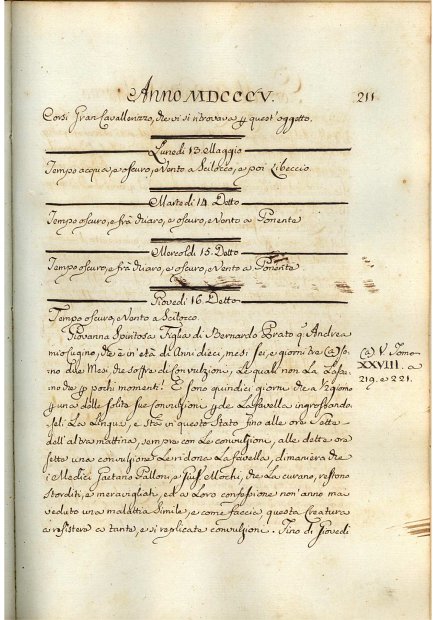 Anno MDCCCV. 211
Corsi Gran Cavallerizzo, che vi si ritrovava p quest'oggetto.
Lunedì 13 Maggio
Tempo acqua, e oscuro, e Vento a Scilocco, e poi Libeccio
Martedì 14. Detto
Tempo oscuro, e frà chiaro, e oscuro, e Vento a Ponente
Mercoldì 15. Detto
Tempo oscuro, e frà chiaro, e oscuro, e Vento a Ponente
Giovedì 16. Detto
Tempo oscuro, e Vento a Scilocco.
Giovanna Spiritosa Figlia di Bernardo Prato q. Andrea
mio Cugino, che è in età di Anni dieci, mesi sei, e giorni tre (a) so,
no due Mesi, che soffre di Convulzioni, le quali non la lascia,
no che p pochi momenti! E sono quindici giorni che a
p una delle solite sue Convulzioni p de La favella ingrossando,
seli La Lingua, e stà in questo Stato fino alle ore Sette
dell'altra mattina, sempre con Le Convulzioni, alle dette ore
sette una convulzione Le ridona La favella, dimaniera che
i Medici Gaetano Palloni, e Giusp Mochi, che La curano, restono
storditi, e meravigliati, ed a Loro confessione non anno ma
veduto una malattia simile, e come faccia questa Creatura
a resistere a tante, e sì replicate convulzioni. Fino di Giovedì
(a) V. Tomo
XXVIII. a
219. e 221.